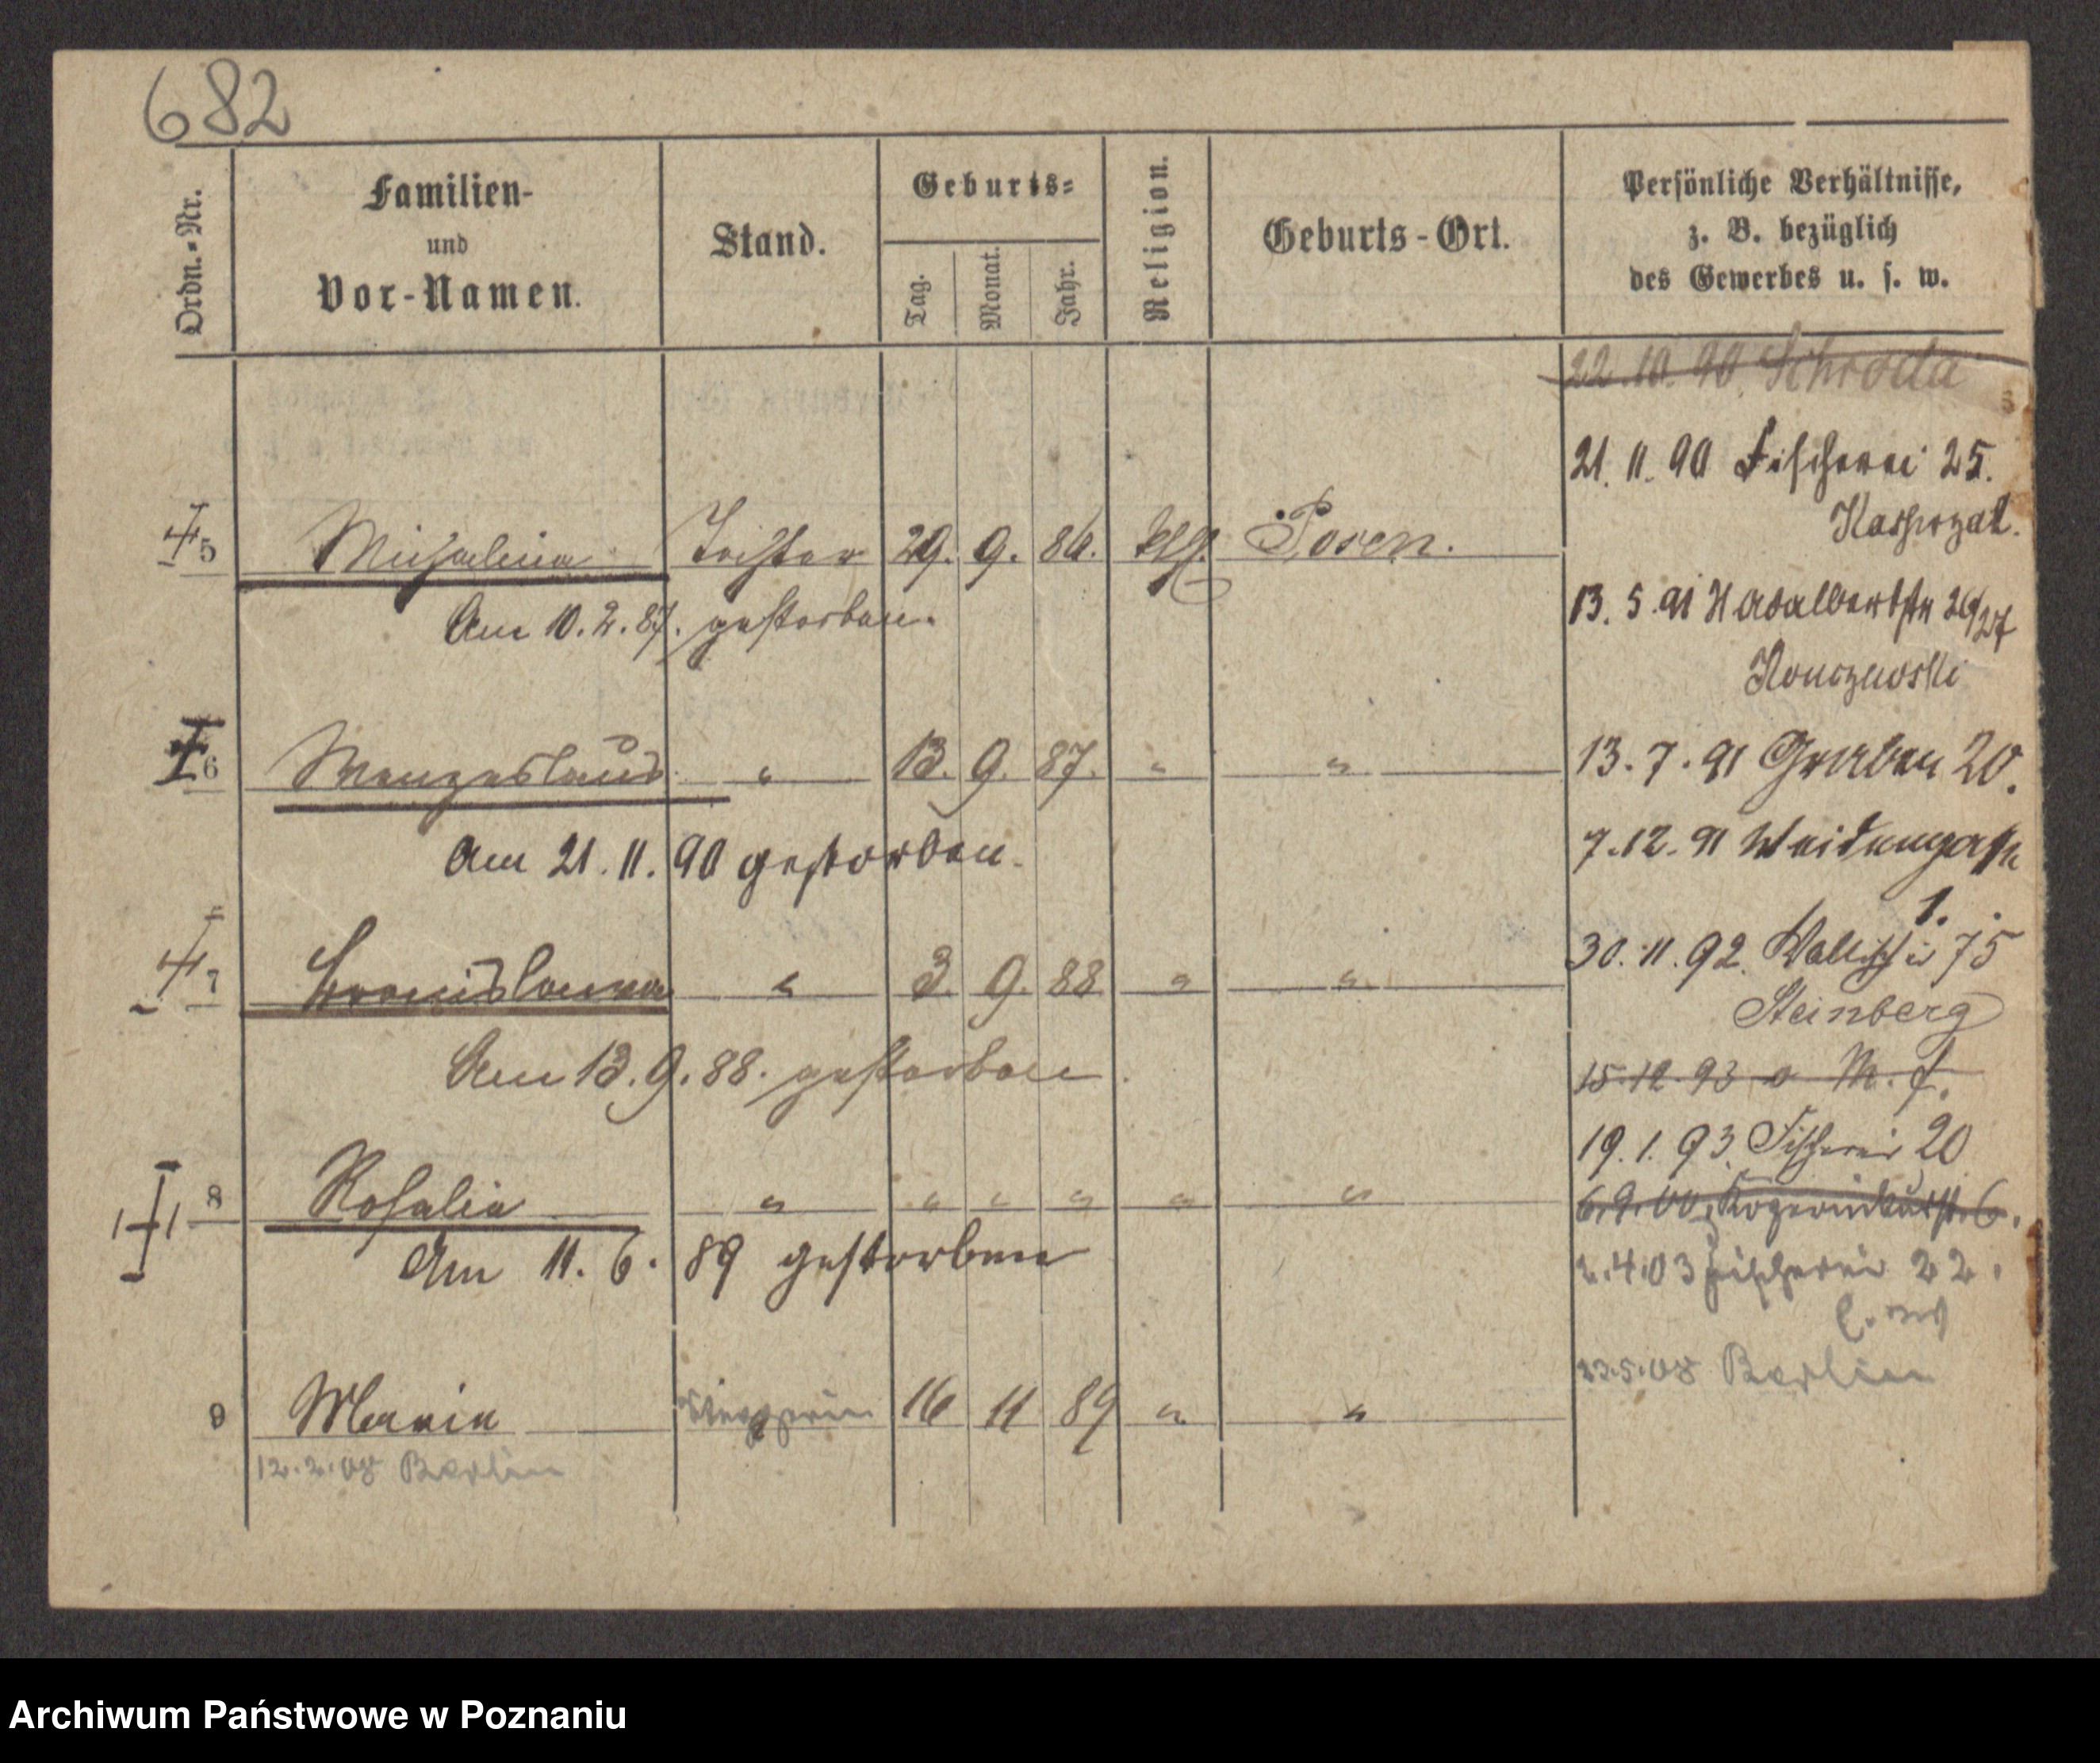 682
Ordn.-Nr.
Familien-
und
Vor-Namen.
Stand.
Geburts-
Tag.
Monat.
Jahr.
Religion.
Geburts-Ort.
Persönliche Verhältnisse,
z. B. bezüglich
des Gewerbes u. s. w.
22.10.90 Schroda
21.11.90 Fischerei 25.
Kasprzak.
5 Michalina Tochter 29. 9. 86. kth. Posen.
Am 10.2.87. gestorben.
13.5.91 St Adalbertstr 26/27
Konczewski
6 Wenzeslaus " 13. 9. 87. " "
13.7.91 Graben 20.
Am 21.11.90 gestorben.
7.12.91 Weidengasse
1.
7 Bronislawa " 3. 9. 88 " "
30.11.92. Wallischei 75
Steinberg
Am 13.9.88. gestorben
15.12.93 v M. f.
19.1.93. Fischerei 20
8 Rosalia " " " " " "
6.9.00 6.
Am 11.6.89 gestorben
2.4.03 Fischerei 22.
23.5.08 Berlin
9 Maria 16 11 89 " "
12.2.08 Berlin
Archiwum Państwowe w Poznaniu